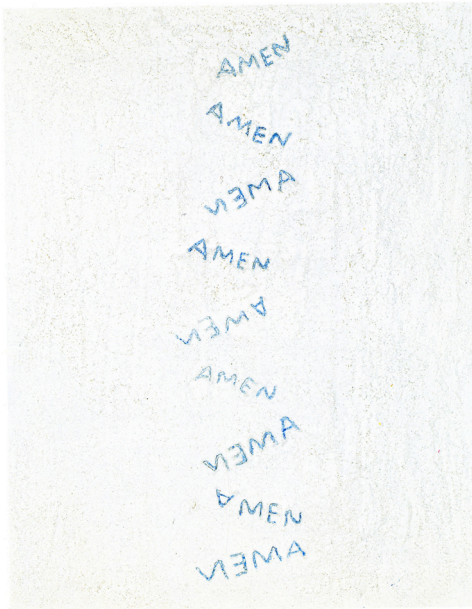 AMEN
AMEN
AMEN
AMEN
AMEN
AMEN
AMEN
AMEN
AMEN